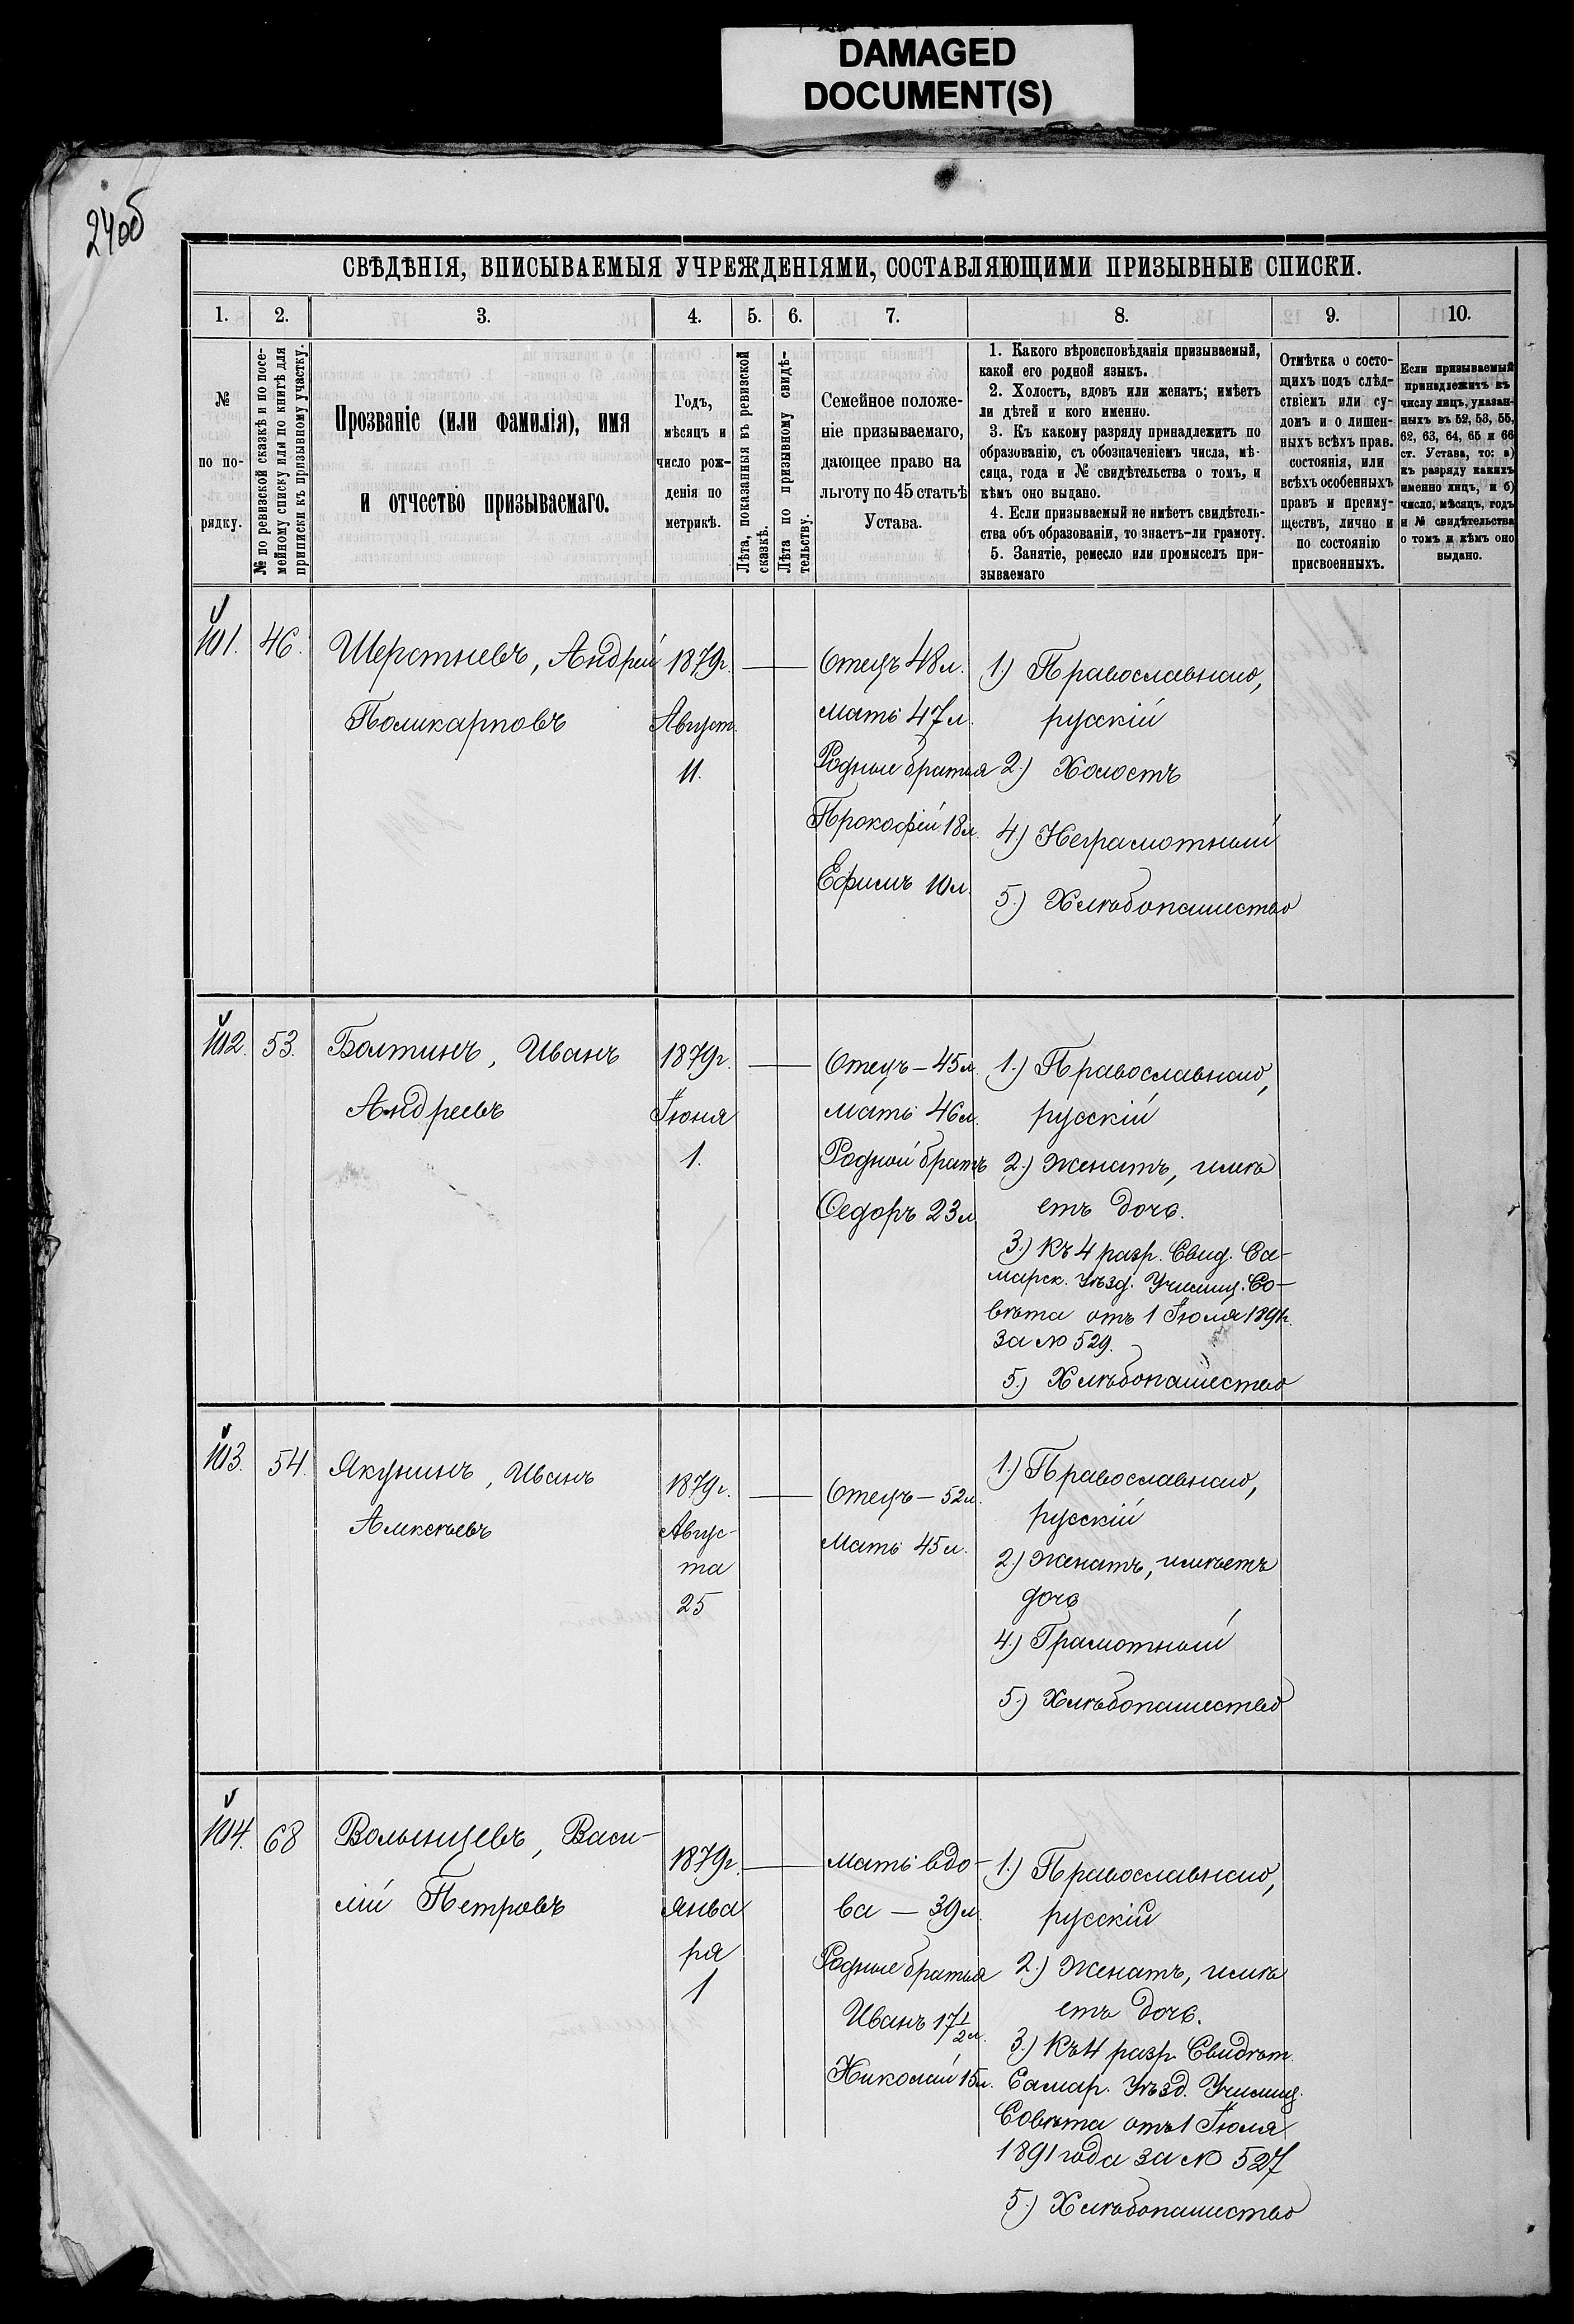 DAMAGED
DOCUMENT(S)
24об
СВѢДѢНІЯ, ВПИСЫВАЕМЫЯ УЧРЕЖДЕНІЯМИ, СОСТАВЛЯЮЩИМИ ПРИЗЫВНЫЕ СПИСКИ.
1. 2. 3. 4. 5. 6. 7. 8. 9. 10.
№
по по-
рядку.
№ по ревизской сказкѣ и по посе-
мейному списку или по книгѣ для
приписки къ призывному участку.
Прозваніе (или фамилія), имя
и отчество призываемаго.
Годъ,
мѣсяцъ и
число рож-
денія по
метрикѣ.
Лѣта, показанныя въ ревизской
сказкѣ.
Лѣта по призывному свидѣ-
тельству.
Семейное положе-
ніе призываемаго,
дающее право на
льготу по 45 статьѣ
Устава.
1. Какого вѣроисповѣданія призываемый,
какой его родной языкъ.
2. Холостъ, вдовъ или женатъ; имѣетъ
ли дѣтей и кого именно.
3. Къ какому разряду принадлежитъ по
образованію, съ обозначеніемъ числа, мѣ-
сяца, года и № свидѣтельства о томъ, и
кѣмъ оно выдано.
4. Если призываемый не имѣетъ свидѣтель-
ства объ образованіи, то знаетъ-ли грамоту.
5. Занятіе, ремесло или промыселъ при-
зываемаго
Отмѣтка о состо-
щихъ подъ слѣд-
ствіемъ или су-
домъ и о лишен-
ныхъ всѣхъ прав.
состоянія, или
всѣхъ особенныхъ
правъ и преиму-
ществъ, лично и
по состоянію
присвоенныхъ.
Если призываемый
принадлежитъ къ
числу лицъ, указан-
ныхъ въ 52, 53, 55,
62, 63, 64, 65 и 66
ст. Устава, то: а)
къ разряду какихъ
именно лицъ, и б)
число, мѣсяцъ, годъ
и № свидѣтельства
о томъ и кѣмъ оно
выдано.
101. 46. Шерстневъ, Андрей
Поликарповъ
1879г.
Август.
11.
Отецъ 48л.
мать 47л.
Родные братья
Прокофій 18л.
Ефимъ 10л.
1.) Православнаго,
русскій
2.) Холостъ
4.) Неграмотный
5.) Хлѣбопашество
102. 53. Болтинъ, Иванъ
Андреевъ
1879г.
Іюня
1.
Отецъ — 45л.
мать 46л.
Родной братъ
Ѳедоръ 23л.
1.) Православнаго,
русскій
2.) Женатъ, имѣ
етъ дочь.
3.) Къ 4 разр. Свид. Са-
марск. Уѣзд. Училищ. Со-
вѣта отъ 1 Іюля 1891г.
за № 529.
5.) Хлѣбопашество
103. 54. Якунинъ, Иванъ
Алексѣевъ
1879г.
Авгус-
та
25
Отецъ — 52л.
Мать 45л.
1.) Православнаго,
русскій
2.) Женатъ, имѣетъ
дочь
4.) Грамотный
5.) Хлѣбопашество
104. 68 Волынцевъ, Васи-
лій Петровъ
1879г.
Янва
ря
1
мать вдо-
ва — 39л.
Родные братья
Иванъ 17 1/2 л.
Николай 15л.
1.) Православнаго,
русскій
2.) Женатъ, имѣ
етъ дочь.
3.) Къ 4 разр. Свидѣт.
Самар. Уѣзд. Училищ.
Совѣта отъ 1 Іюля
1891 года за № 527
5.) Хлѣбопашество